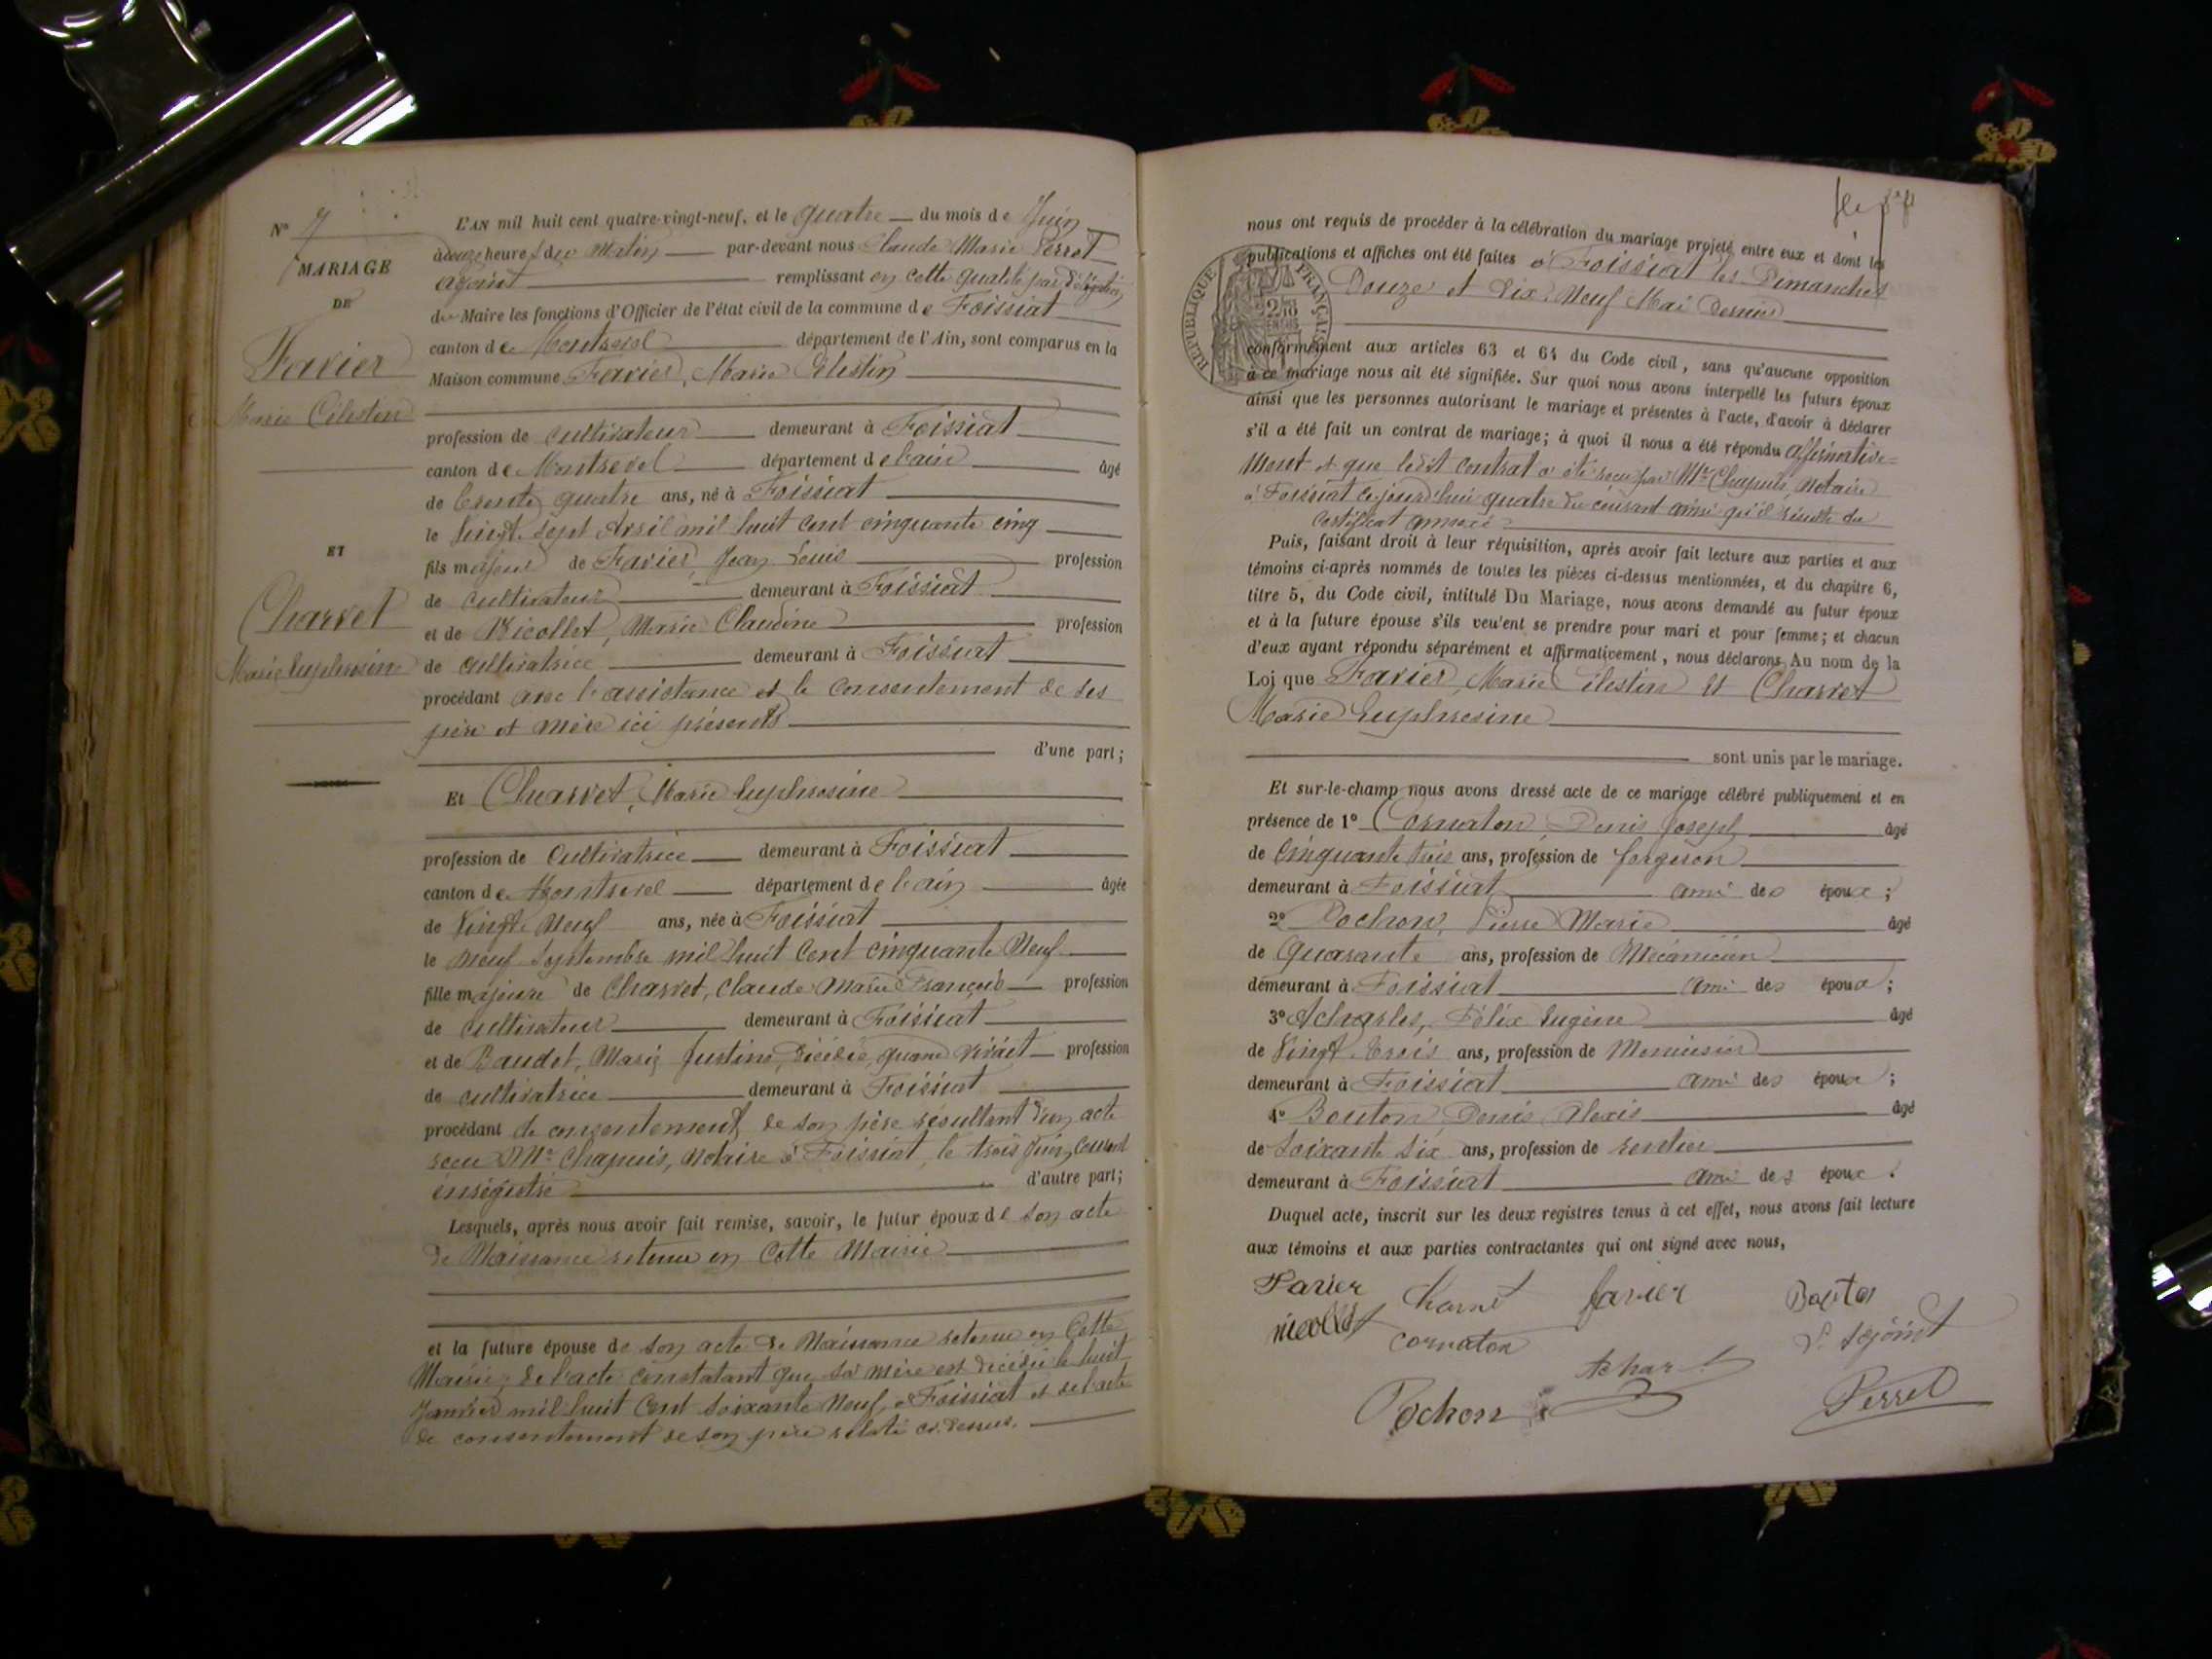 N° 7
MARIAGE
DE
Favier
Marie Célestin
ET
Charvet
Marie Euphrosine
L'AN mil huit cent quatre-vingt-neuf, et le quatre du mois de Juin
à onze heures du Matin par-devant nous Claude Marie Perret
adjoint remplissant en cette qualité par délégation
du Maire les fonctions d'Officier de l'état civil de la commune de Foissiat
canton de Montrevel département de l'Ain, sont comparus en la
Maison commune Favier, Marie Célestin
profession de cultivateur demeurant à Foissiat
canton de Montrevel département de l'ain âgé
de trente quatre ans, né à Foissiat
le Vingt Sept Avril mil huit cent cinquante cinq
fils majeur de Favier, Jean Louis profession
de cultivateur demeurant à Foissiat
et de Nicollet, Marie Claudine profession
de cultivatrice demeurant à Foissiat
procédant avec l'assistance et le consentement de ses
père et mère ici présents
d'une part;
Et Charvet, Marie Euphrosine
profession de Cultivatrice demeurant à Foissiat
canton de Montrevel département de l'ain âgée
de Vingt Neuf ans, née à Foissiat
le neuf Septembre mil huit Cent cinquante Neuf
fille majeure de Charvet, Claude Marie François profession
de cultivateur demeurant à Foissiat
et de Baudet, Marie Justine, décédée, quand vivait profession
de cultivatrice demeurant à Foissiat
procédant de consentement de son père résultant d'un acte
recu Me Chapuis, Notaire à Foissiat, le trois Juin Courant
enregistré d'autre part;
Lesquels, après nous avoir fait remise, savoir, le futur époux de son acte
de Naissance retenu en Cette Mairie
et la future épouse de son acte de Naissance retenu en Cette
Mairie, de l'acte constatant que sa mère est décédée le huit
Janvier mil huit Cent Soixante Neuf, à Foissiat et de l'acte
de consentement de son père relaté ci-dessus.
nous ont requis de procéder à la célébration du mariage projeté entre eux et dont les
publications et affiches ont été faites à Foissiat les Dimanches
Douze et Dix Neuf Mai Dernier
RÉPUBLIQUE FRANÇAISE
conformément aux articles 63 et 64 du Code civil, sans qu'aucune opposition
à ce mariage nous ait été signifiée. Sur quoi nous avons interpellé les futurs époux
ainsi que les personnes autorisant le mariage et présentes à l'acte, d'avoir à déclarer
s'il a été fait un contrat de mariage; à quoi il nous a été répondu affirmative-
Ment et que ledit contrat a été recu par Me Chapuis, Notaire
à Foissiat cejourd'hui quatre du courant ainsi qu'il résulte du
Certificat annexé
Puis, faisant droit à leur réquisition, après avoir fait lecture aux parties et aux
témoins ci-après nommés de toutes les pièces ci-dessus mentionnées, et du chapitre 6,
titre 5, du Code civil, intitulé Du Mariage, nous avons demandé au futur époux
et à la future épouse s'ils veulent se prendre pour mari et pour femme; et chacun
d'eux ayant répondu séparément et affirmativement, nous déclarons Au nom de la
Loi que Favier, Marie Célestin et Charvet
Marie Euphrosine
sont unis par le mariage.
Et sur-le-champ nous avons dressé acte de ce mariage célébré publiquement et en
présence de 1° Cornaton, Denis Joseph âgé
de Cinquante trois ans, profession de forgeron
demeurant à Foissiat ami des époux;
2° Pochon, Pierre Marie âgé
de Quarante ans, profession de Mécanicien
demeurant à Foissiat ami des époux;
3° Acharles, Félix Eugène âgé
de Vingt trois ans, profession de Menuisier
demeurant à Foissiat ami des époux;
4° Bouton Denis Alexis âgé
de Soixante Six ans, profession de rentier
demeurant à Foissiat ami des époux.
Duquel acte, inscrit sur les deux registres tenus à cet effet, nous avons fait lecture
aux témoins et aux parties contractantes qui ont signé avec nous,
Favier Charvet favier
nicollet cornaton
Pochon Perret